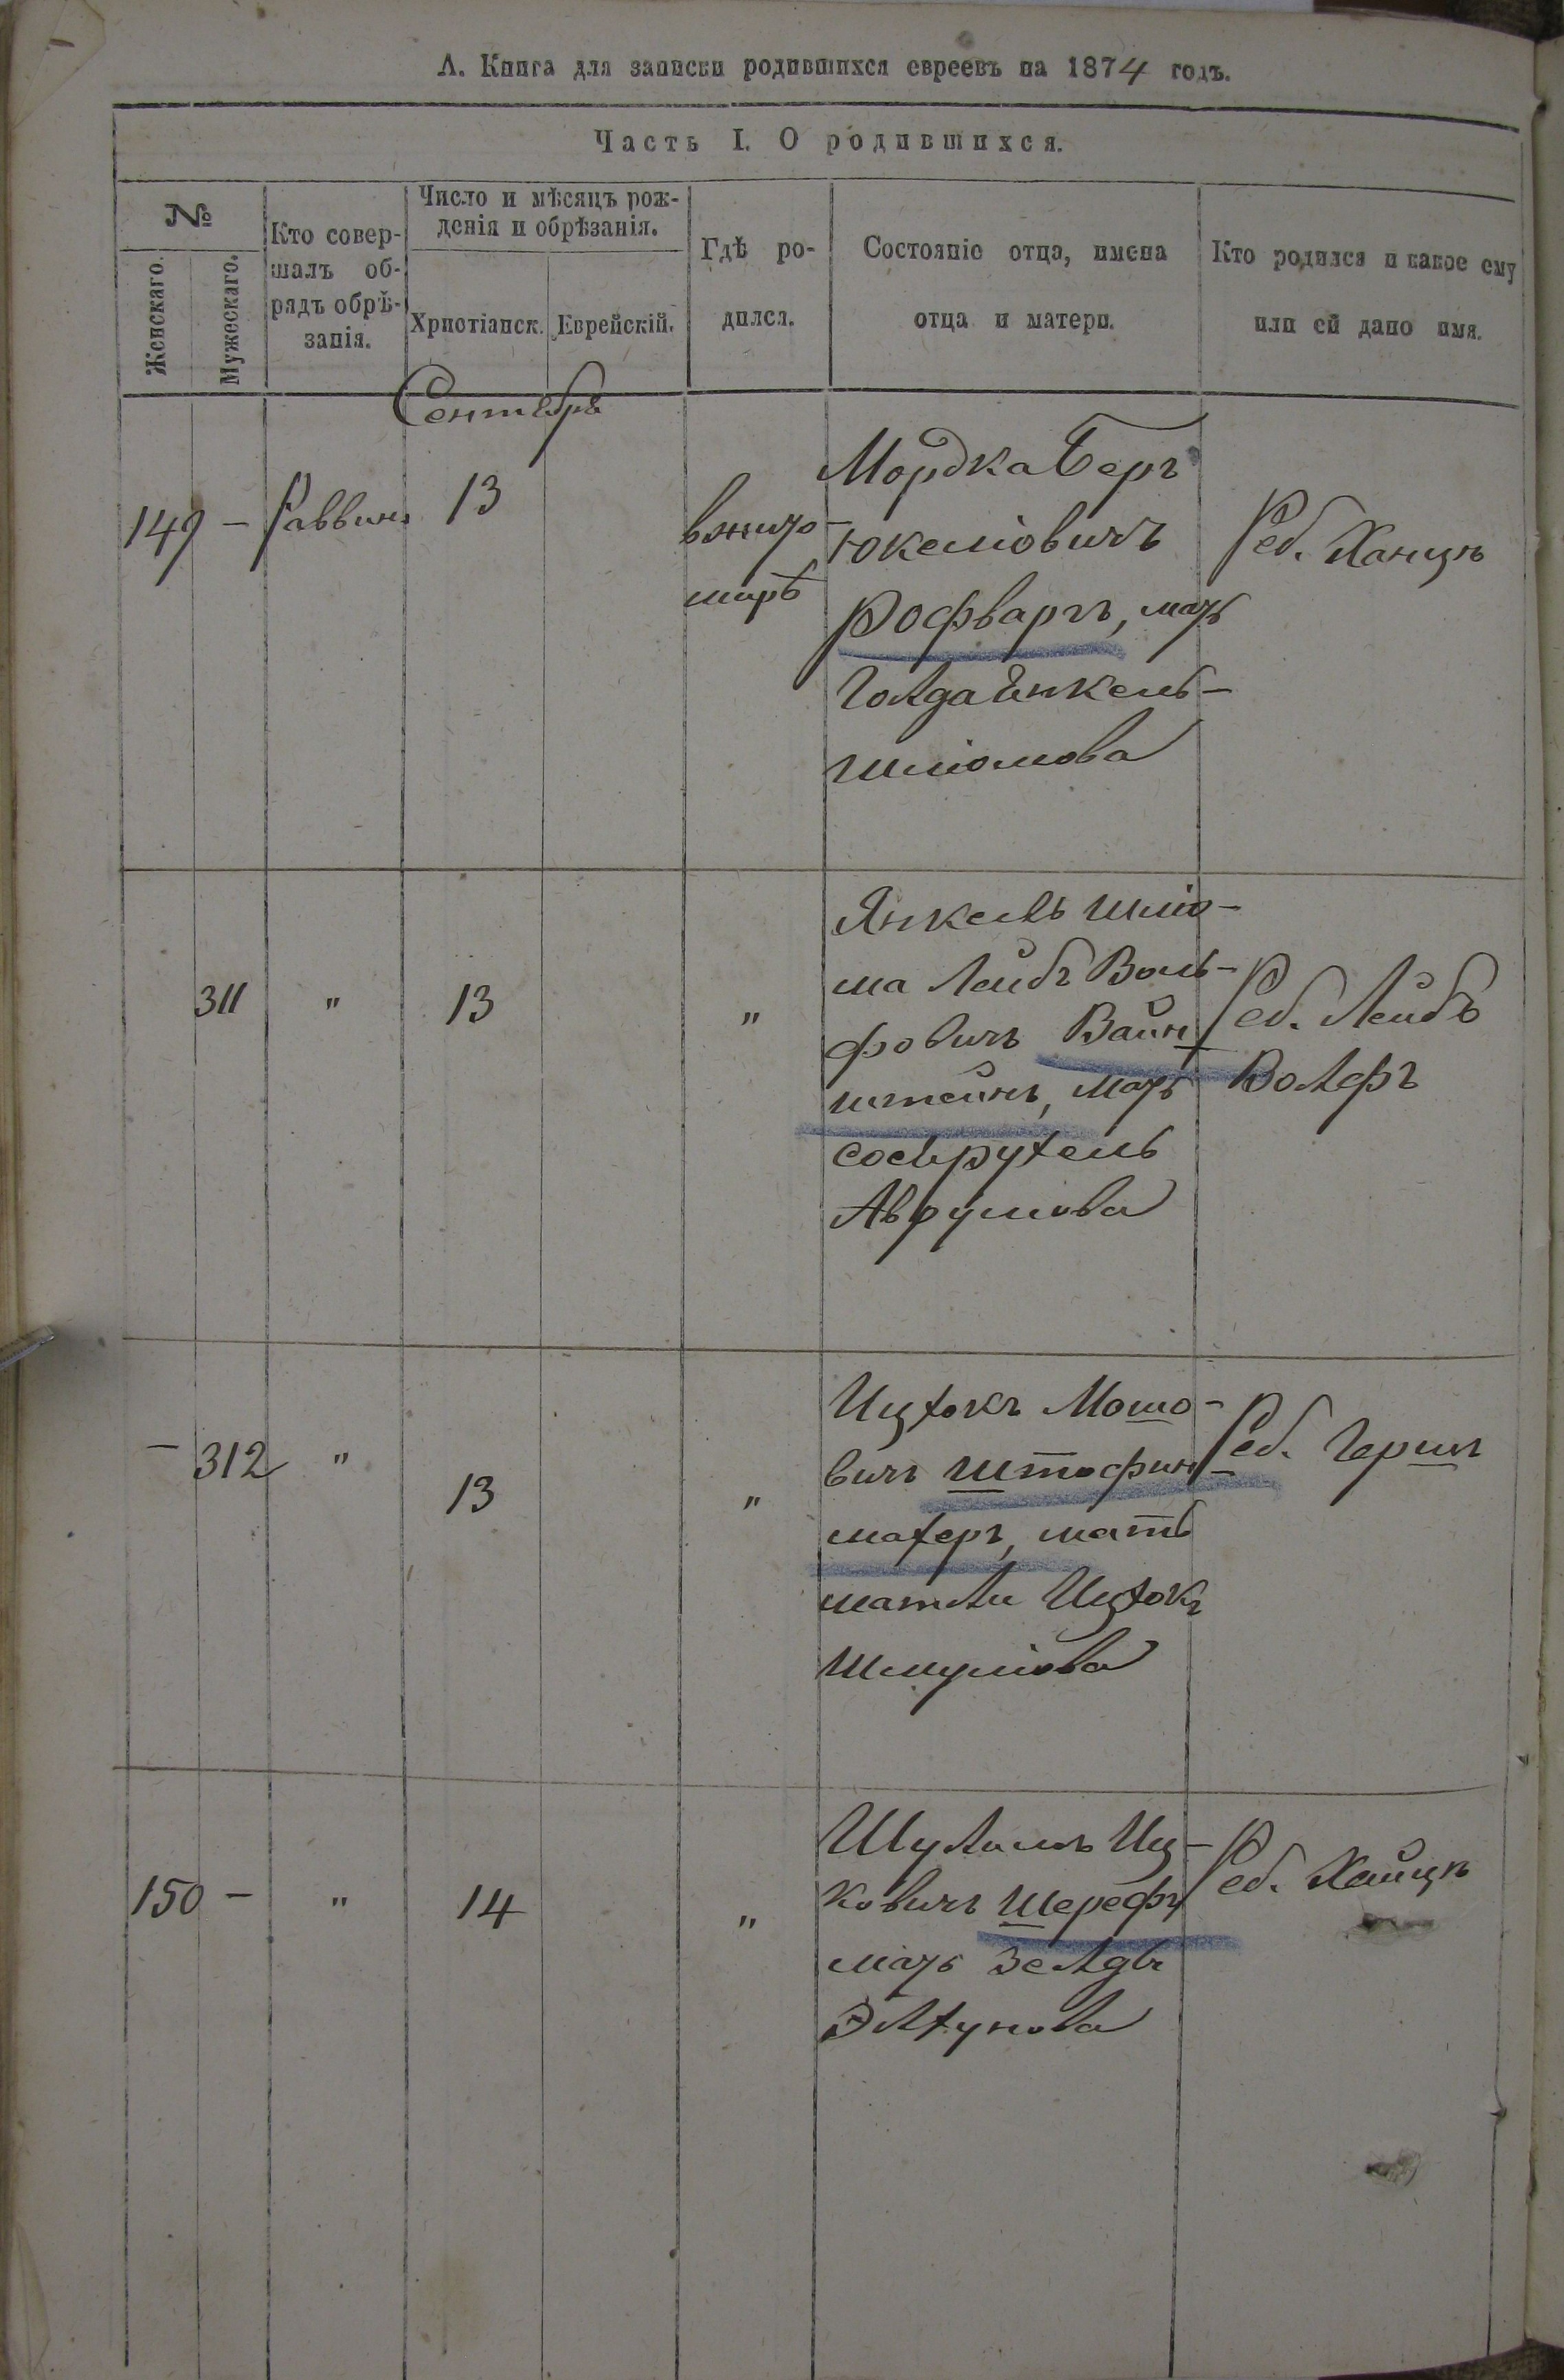 А. Книга для записки родившихся евреевъ на 1874 годъ.
Часть I. О родившихся.
№
Женскаго.
Мужескаго.
Кто совер-
шалъ об-
рядъ обрѣ-
занія.
Число и мѣсяцъ рож-
денія и обрѣзанія.
Христіанск.
Еврейскій.
Гдѣ ро-
дился.
Состояніе отца, имена
отца и матери.
Кто родился и какое ему
или ей дано имя.
Сентебрь
149 –
Раввинъ
13
вжито-
мирѣ
Мордка Берг
Юкеліовичъ
Рофваргъ, мать
Голда Енкель-
Шліомова
Реб. Ханцѣ
311
"
13
"
Янкель Шліо-
ма Лейбъ Воль-
фовичъ Вайн-
штейнъ, мать
Сосърухель
Аврумова
Реб. Лейбъ
Волфъ
– 312
"
13
"
Ицхокъ Мошо-
вичъ Штофин-
махеръ, мать
Матли Ицхокъ
Шмуліова
Реб. Гершъ
150 –
"
14
"
Шулимъ Иц-
ковичъ Шерефъ
мать Зелды
Элхунова
Реб. Хайцѣ